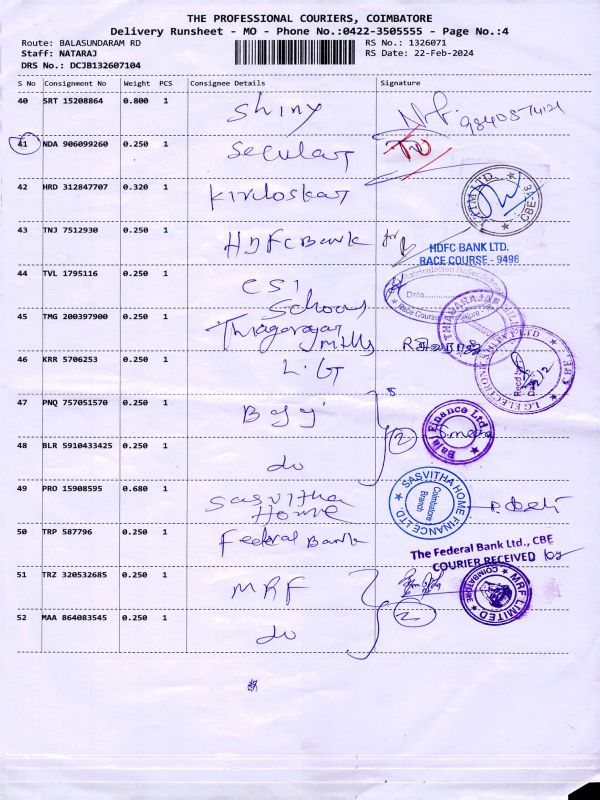 THE PROFESSIONAL COURIERS, COIMBATORE
Delivery Runsheet - MO - Phone No.:0422-3505555 - Page No.:4
Route: BALASUNDARAM RD RS No.: 1326071
Staff: NATARAJ RS Date: 22-Feb-2024
DRS No.: DCJB132607104
S No Consignment No Weight PCS Consignee Details Signature
40 SRT 15208864 0.800 1 Shiny
41 NDA 906099260 0.250 1 Secular
42 HRD 312847707 0.320 1 Kirloskar
CBE-3
43 TNJ 7512930 0.250 1 HDFC Bank for
HDFC BANK LTD.
RACE COURSE - 9496
44 TVL 1795116 0.250 1 CSI
School
Date
45 TMG 200397900 0.250 1 Thiagarajar
mills
46 KRR 5706253 0.250 1 L.G
LG ELECTRONICS
47 PNQ 757051570 0.250 1 Bajaj
2
Bajaj Finance Ltd
48 BLR 5910433425 0.250 1 do
49 PRO 15908595 0.680 1 Sasvitha
Home
SASVITHA HOME FINANCE LTD.
Coimbatore
Branch
50 TRP 587796 0.250 1 Federal Bank
The Federal Bank Ltd., CBE
COURIER RECEIVED
51 TRZ 320532685 0.250 1 MRF
MRF LIMITED
COIMBATORE
2
52 MAA 864083545 0.250 1 do